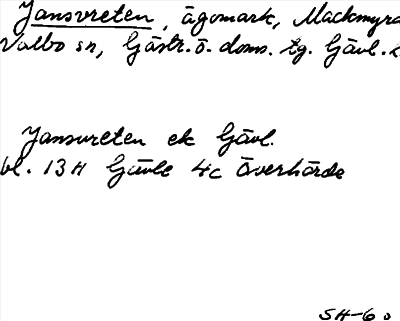 Jansvreten, ägomark, Mackmyra
Valbo sn, Gästr. ö. doms. tg. Gävl.
Jansvreten ek Gävl.
bl. 13H Gävle 4c Överhärde
SH-60